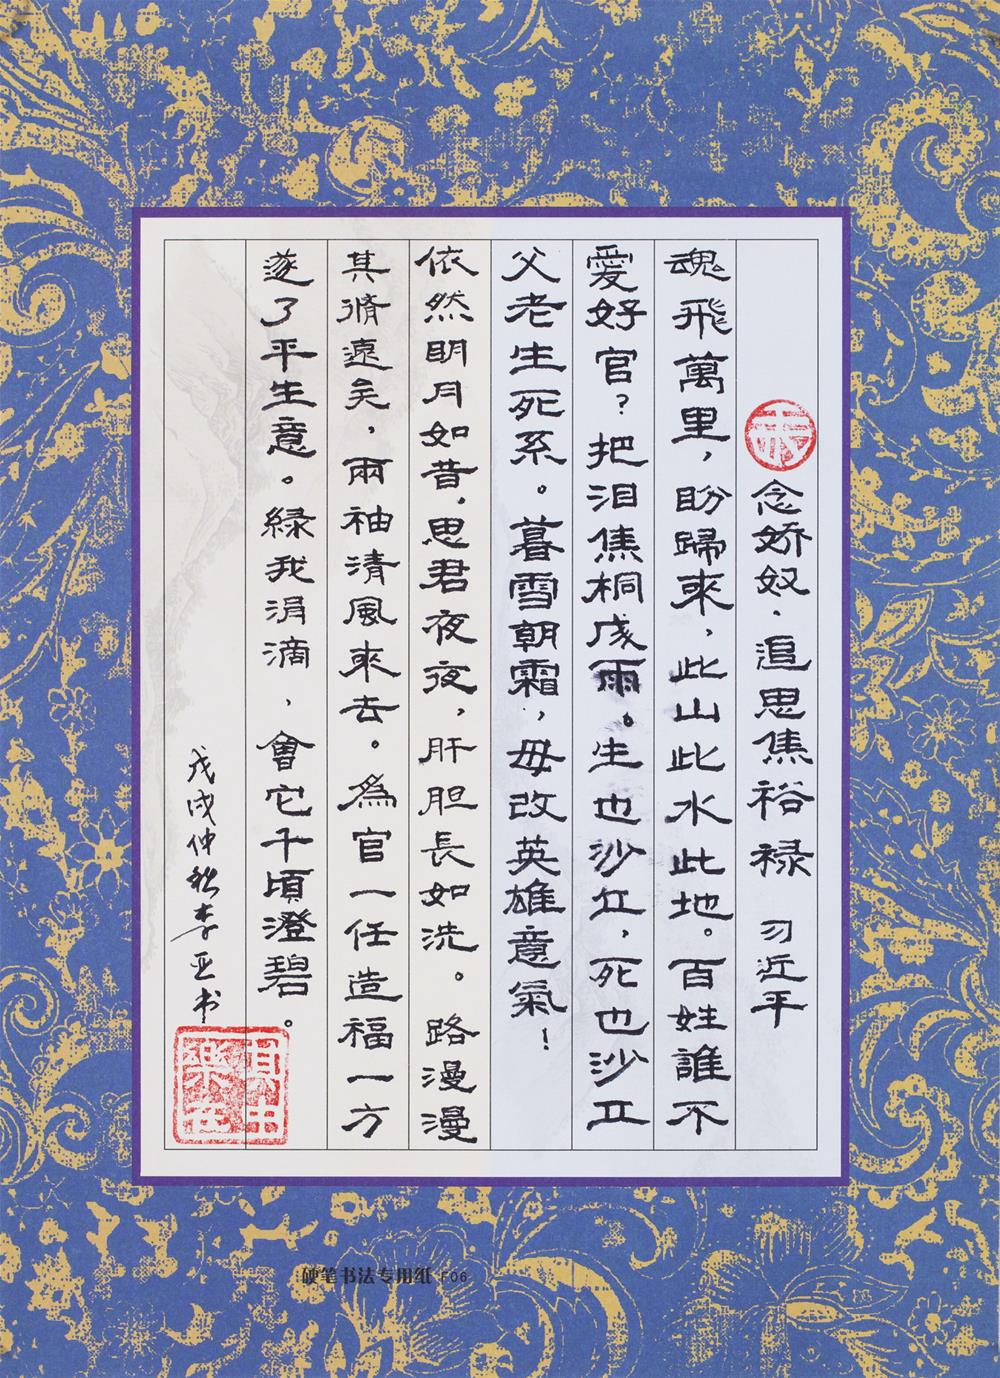 念娇奴·追思焦裕禄 习近平
魂飛萬里，盼歸來，此山此水此地。百姓誰不
愛好官？把泪焦桐成雨。生也沙丘，死也沙丘
父老生死系。暮雪朝霜，毋改英雄意氣！
依然明月如昔，思君夜夜，肝胆長如洗。路漫漫
其脩遠矣，兩袖清風來去。為官一任造福一方
遂了平生意。緑我涓滴，會它千頃澄碧。
戊戌仲秋李亚书
其中
樂在
硬笔书法专用纸 F06